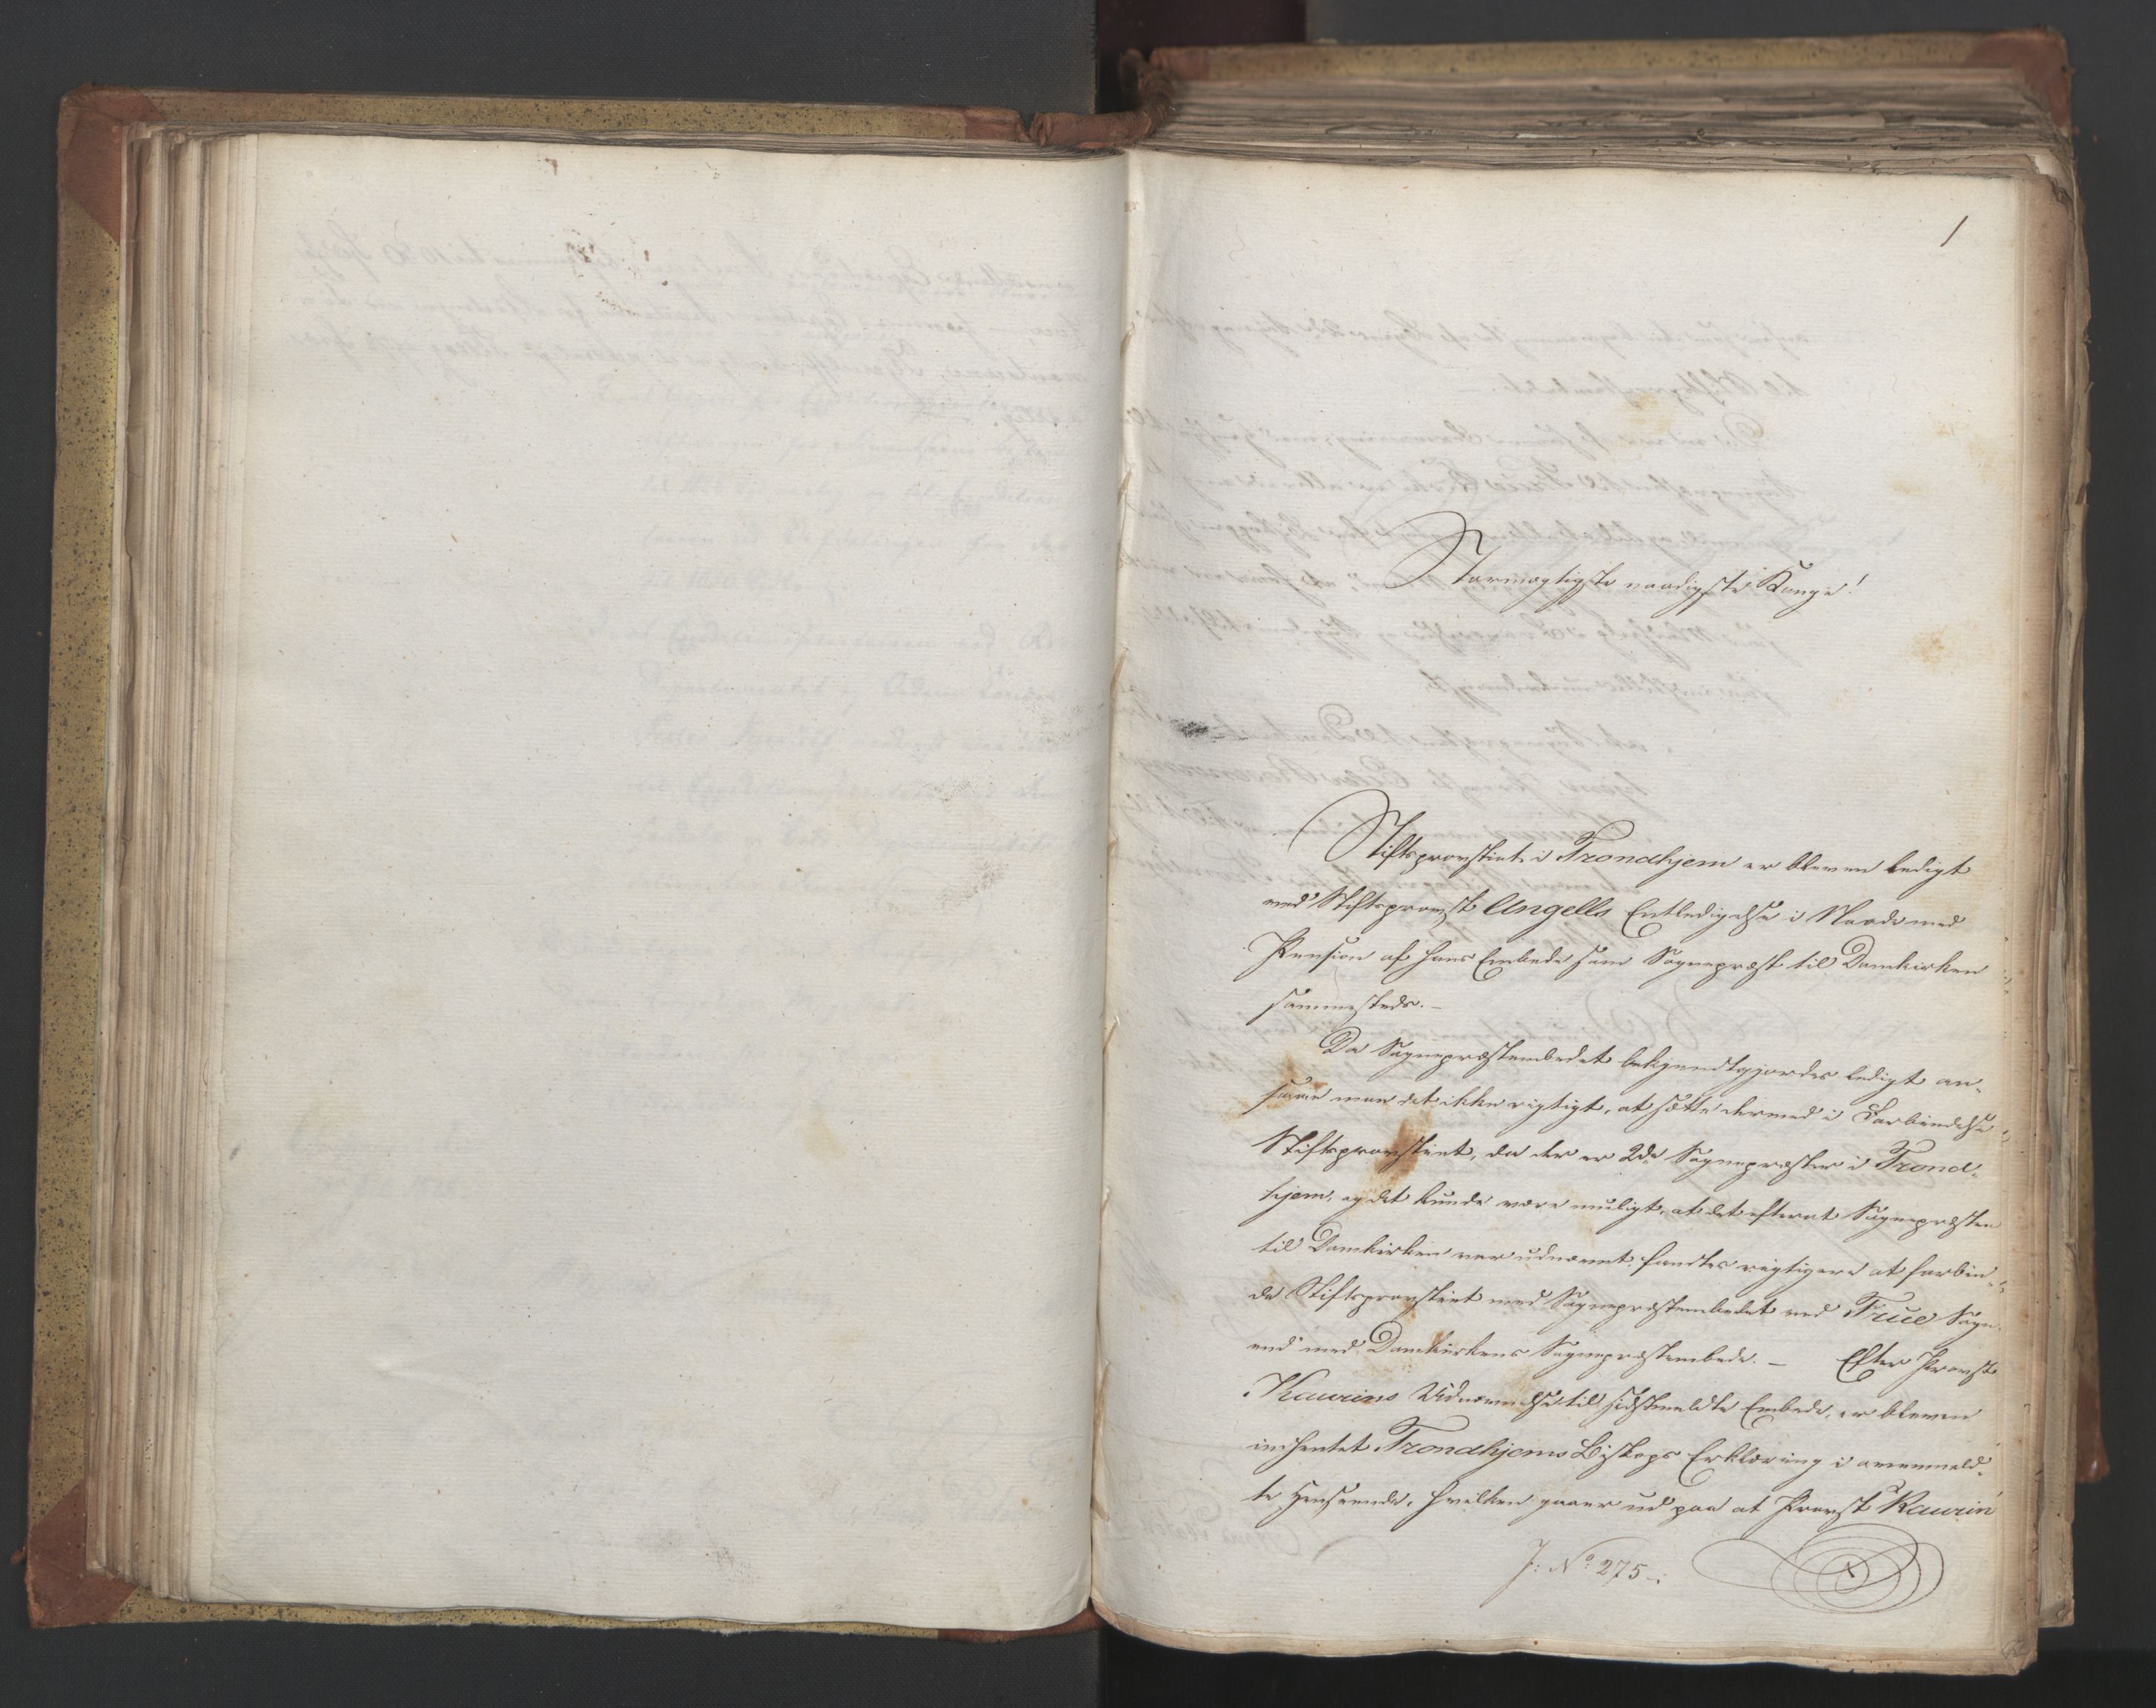 1
Stormægtigste naadigste Konge!
Stiftsprovstiet i Trondhjem er bleven ledigt
ved Stiftsprovst Angells Entledigelse i Naade med
Pension af hans Embede som Sognepræst til Domkirken
sammesteds.—
Da Sognepræstembedet bekjendtgjordes ledigt an-
saae man det ikke rigtigt, at sætte dermed i Forbindelse
Stiftsprovstiet, da der er 2de Sognepræster i Trond-
hjem, og det kunde være muligt, at det efterat Sognepræsten
til Domkirken var udnævnt, fandtes rigtigere at forbin-
de Stiftsprovstiet med Sognepræstembedet ved Frue Sogn
end med Domkirkens Sognepræstembede. — Efter Provst
Kaurins Udnævnelse til sidstmeldte Embede, er bleven
indhentet Trondhjems Biskops Erklæring i ovenmeld-
te Henseende, hvilken gaaer ud paa at Provst Kaurin
J: No 275.